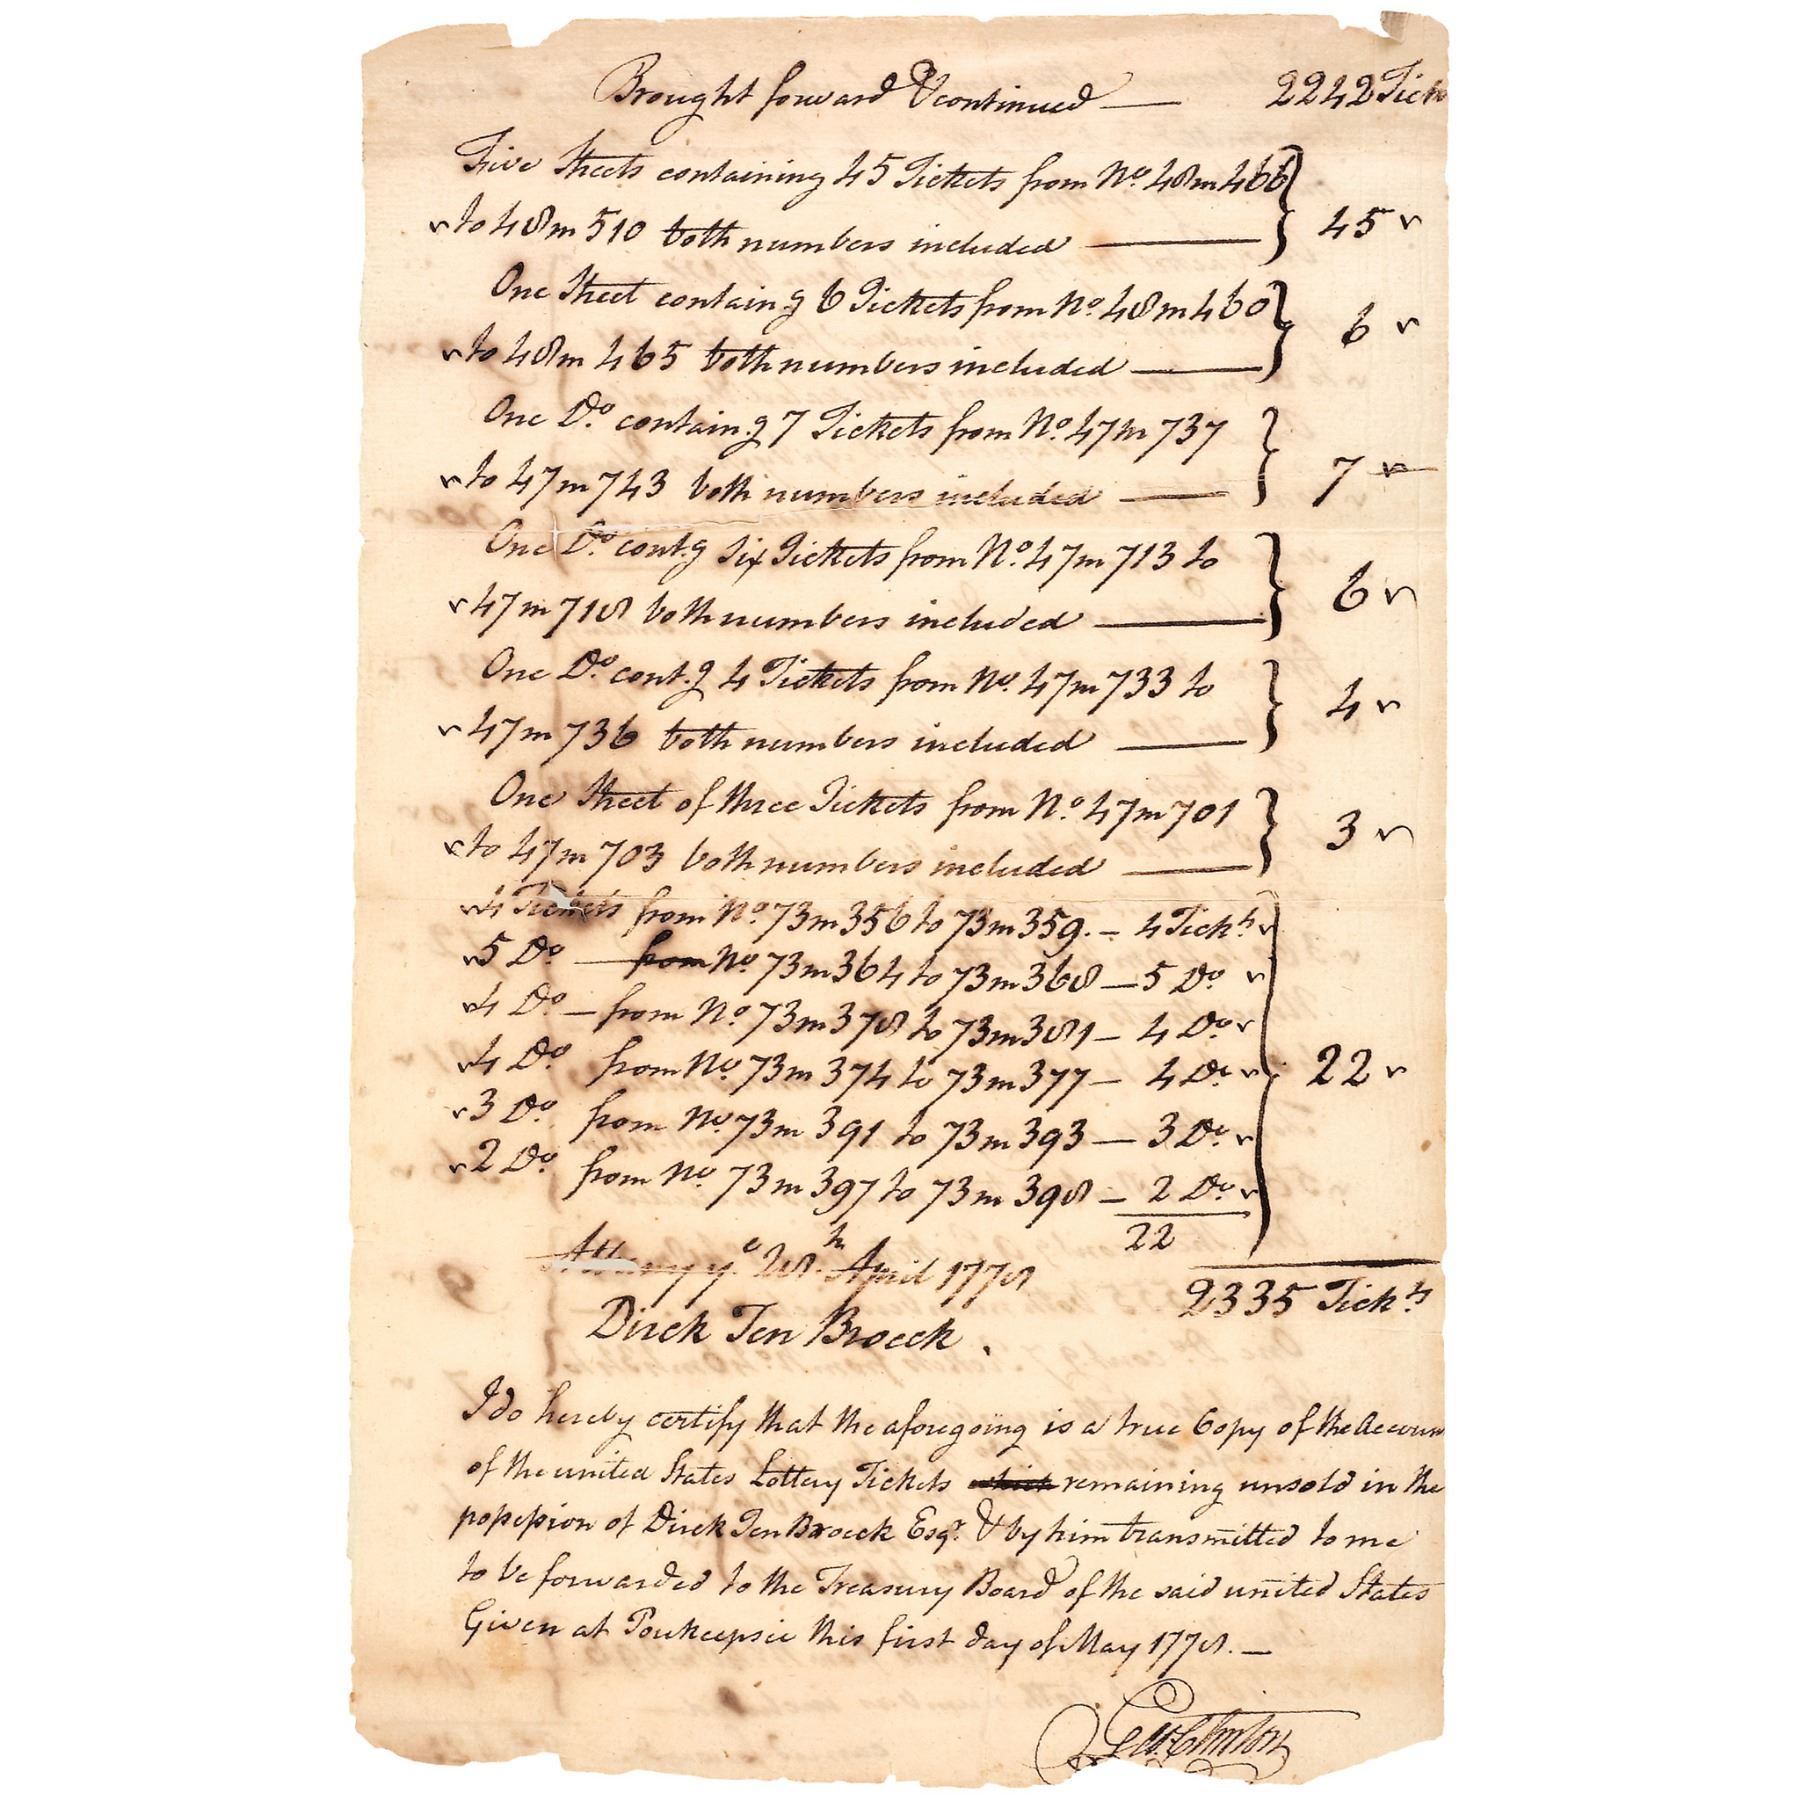 Brought forward & continued — 2242 Tick
Five Sheets containing 45 Tickets from No. 48m466
to 48m510 both numbers included — 45
One Sheet contain.g 6 Tickets from No. 48m460
to 48m465 both numbers included — 6
One Do. contain.g 7 Tickets from No. 47m737
to 47m743 both numbers included — 7
One Do. cont.g Six Tickets from No. 47m713 to
47m718 both numbers included — 6
One Do. cont.g 4 Tickets from No. 47m733 to
47m736 both numbers included — 4
One Sheet of three Tickets from No. 47m701
to 47m703 both numbers included — 3
4 Tickets from No. 73m356 to 73m359. — 4 Tickts
5 Do. — from No. 73m364 to 73m368 — 5 Do
4 Do — from No. 73m378 to 73m381 — 4 Do
4 Do. from No. 73m374 to 73m377 — 4 Do. 22
3 Do. from No. 73m391 to 73m393 — 3 Do.
2 Do. from No. 73m397 to 73m398 — 2 Do.
22
Albany ye. 28th. April 1778
2335 Tickts
Dirck Ten Broeck.
I do hereby certify that the aforegoing is a true Copy of the Accoun
of the united States Lottery Tickets which remaining unsold in the
possession of Dirck Ten Broeck Esqr. & by him transmitted to me
to be forwarded to the Treasury Board of the said united States
Given at Poukeepsie this first day of May 1778. —
Geo. Clinton